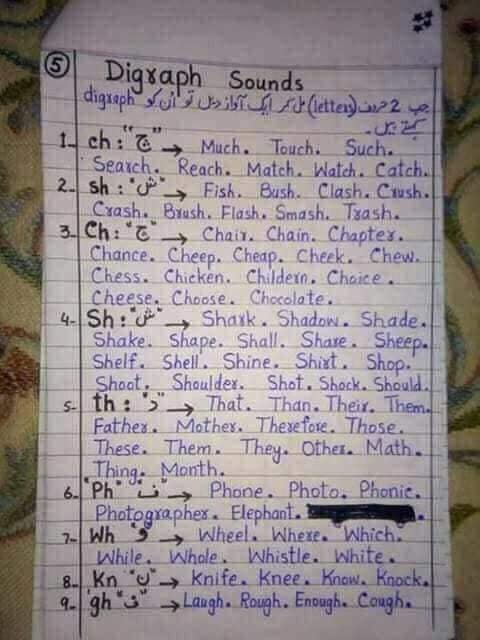 5 Digraph Sounds
جب 2 حروف (letters) مل کر ایک آواز دیں تو اُن کو digraph
کہتے ہیں۔
1- ch : "چ" → Much. Touch. Such.
Search. Reach. Match. Watch. Catch.
2- sh : "ش" → Fish. Bush. Clash. Crush.
Crash. Brush. Flash. Smash. Trash.
3- Ch : "چ" → Chair. Chain. Chapter.
Chance. Cheep. Cheap. Cheek. Chew.
Chess. Chicken. Childern. Choice.
Cheese. Choose. Chocolate.
4- Sh : "ش" → Shark. Shadow. Shade.
Shake. Shape. Shall. Share. Sheep.
Shelf. Shell. Shine. Shirt. Shop.
Shoot. Shoulder. Shot. Shock. Should.
5- th : "د" → That. Than. Their. Them.
Father. Mother. Therefore. Those.
These. Them. They. Other. Math.
Thing. Month.
6- "Ph" "ف" → Phone. Photo. Phonic.
Photographer. Elephant.
7- Wh "و" → Wheel. Where. Which.
While. Whole. Whistle. White.
8- Kn "ن" → Knife. Knee. Know. Knock.
9- "gh "ف" → Laugh. Rough. Enough. Cough.